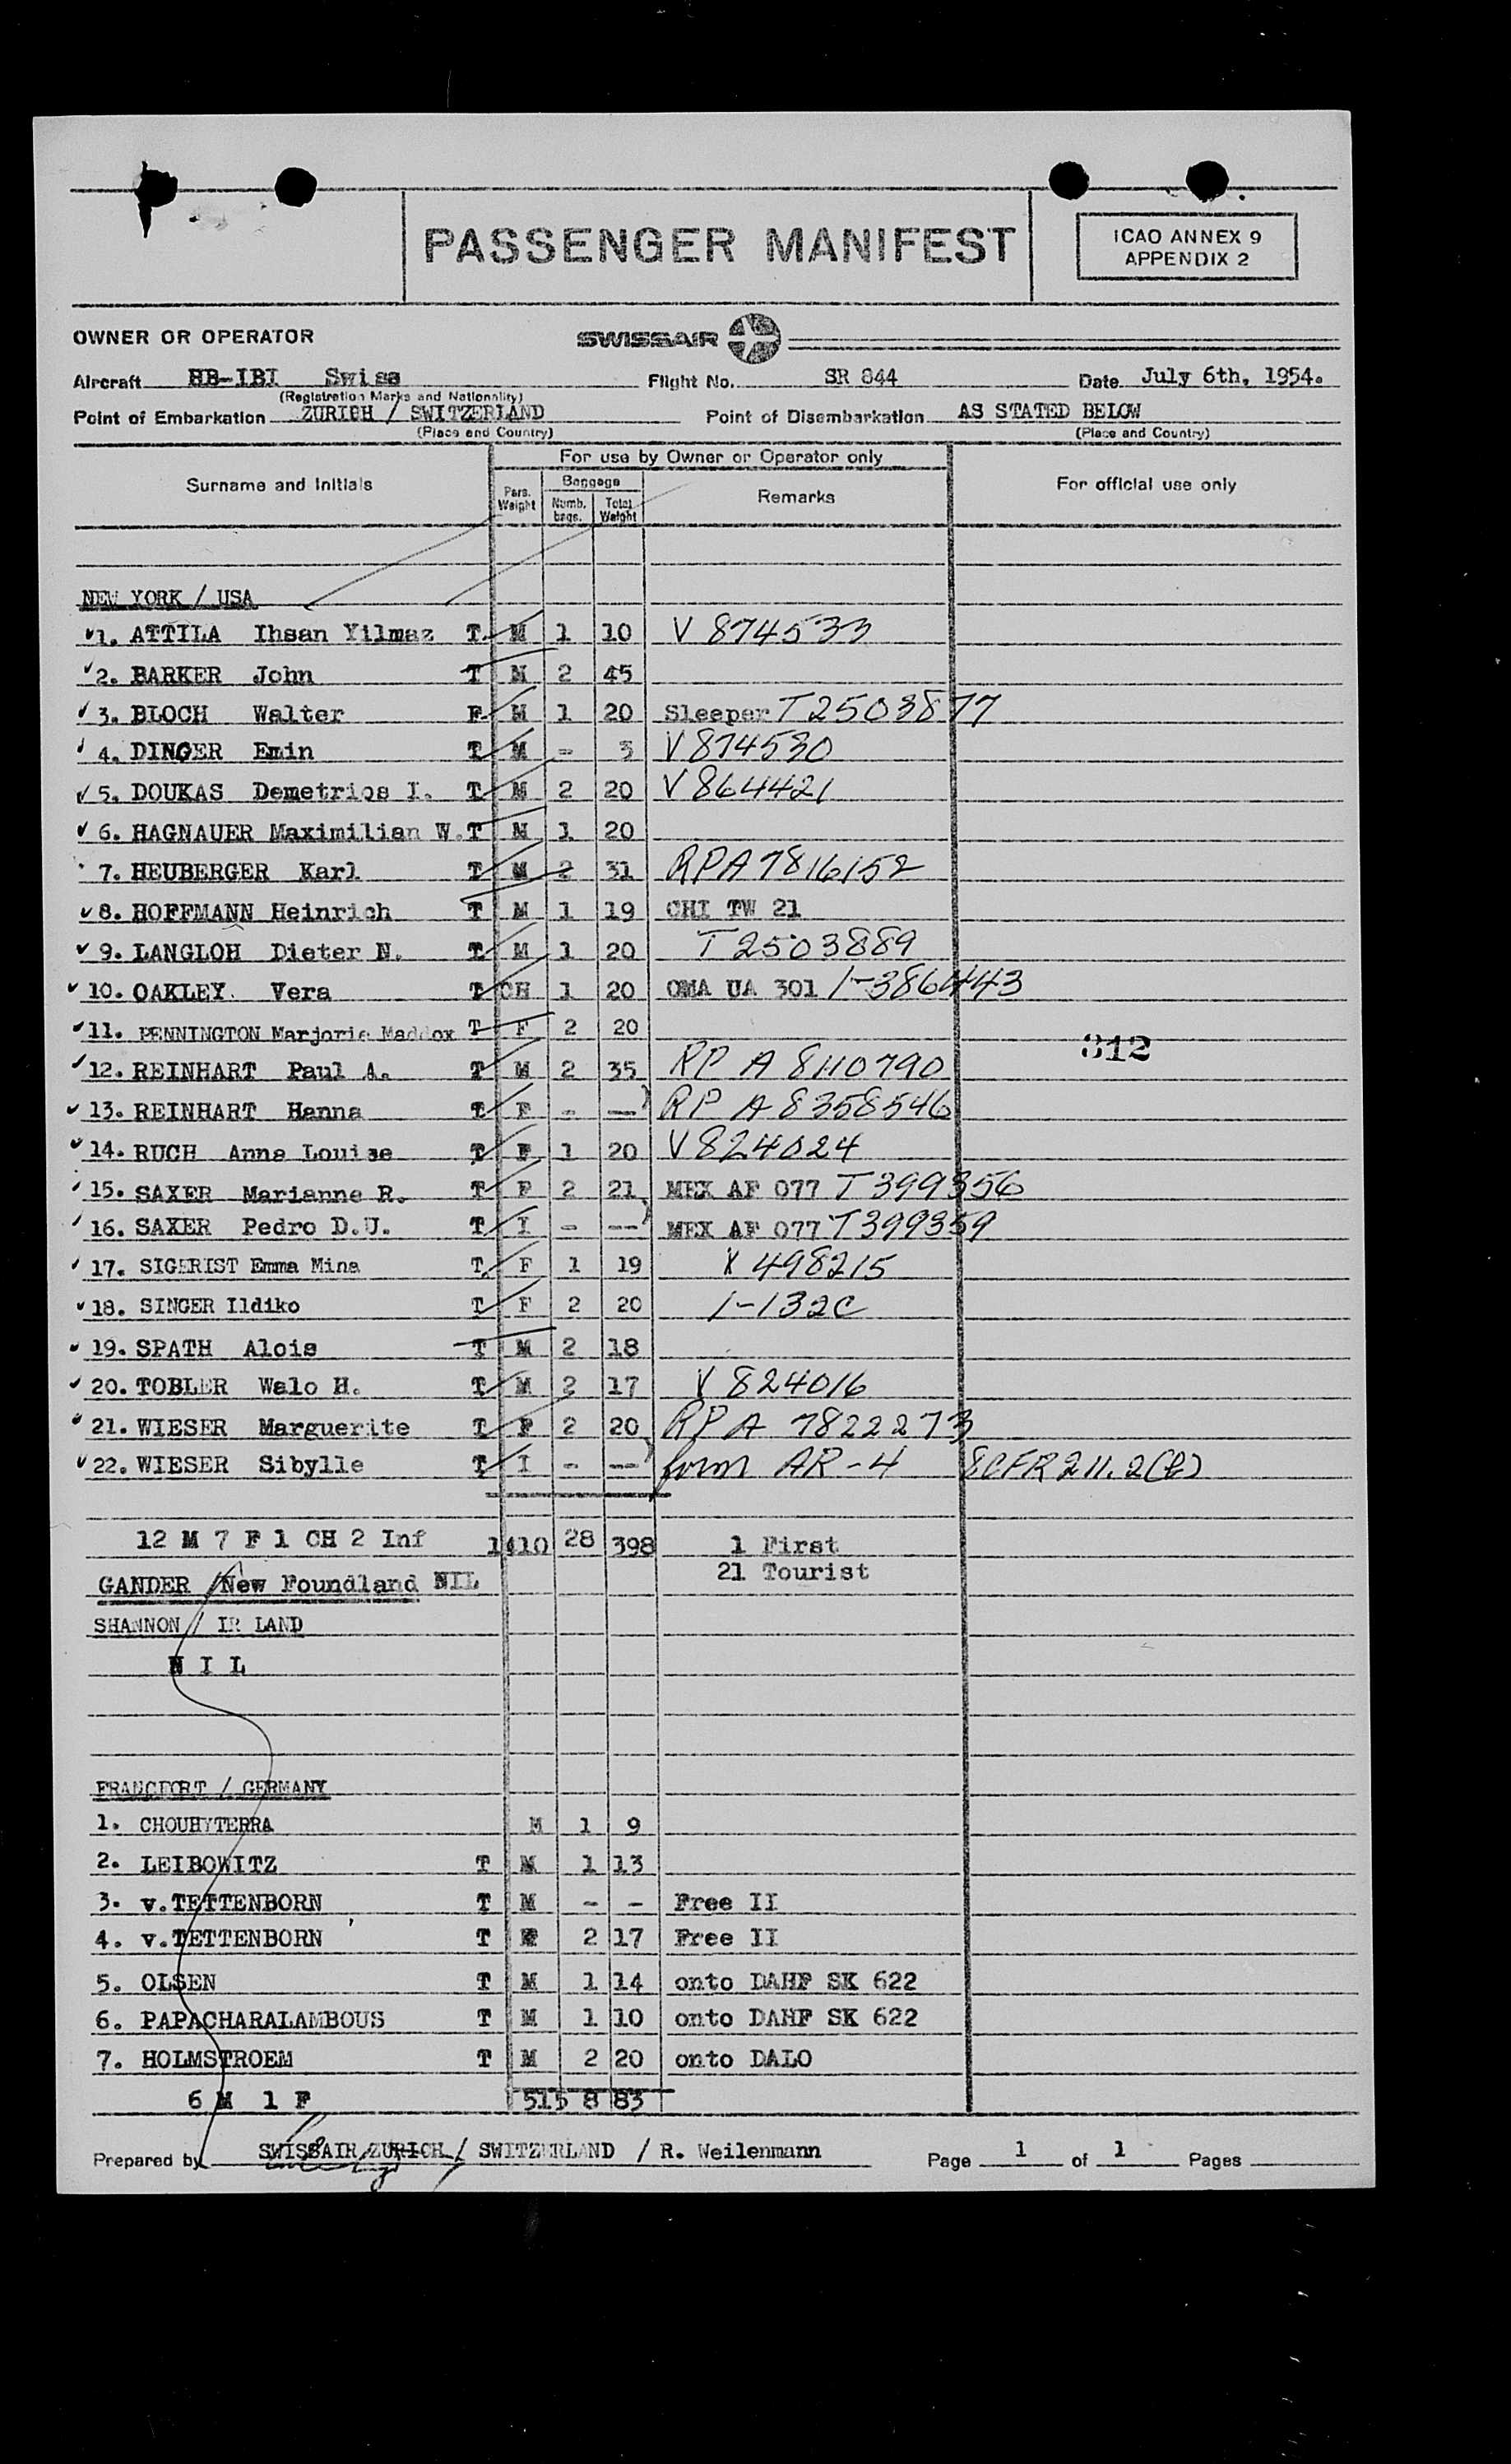 PASSENGER MANIFEST
ICAO ANNEX 9
APPENDIX 2
OWNER OR OPERATOR SWISSAIR
Aircraft HB-IBI Swiss Flight No. SR 844 Date July 6th, 1954.
(Registration Marks and Nationality)
Point of Embarkation ZURICH / SWITZERLAND Point of Disembarkation AS STATED BELOW
(Place and Country) (Place and Country)
For use by Owner or Operator only
Surname and Initials Pers. Weight Baggage Numb. bags. Total Weight Remarks For official use only
NEW YORK / USA
1. ATTILA Ihsan Yilmaz T M 1 10 V 874533
2. BARKER John T M 2 45
3. BLOCH Walter F M 1 20 Sleeper T2503877
4. DINGER Emin T M - 3 V874530
5. DOUKAS Demetrios I. T M 2 20 V864421
6. HAGNAUER Maximilian W. T M 1 20
7. HEUBERGER Karl T M 2 31 RPA7816152
8. HOFFMANN Heinrich T M 1 19 CHI TW 21
9. LANGLOH Dieter N. T M 1 20 T2503889
10. OAKLEY Vera T CH 1 20 OMA UA 301 1-386443
11. PENNINGTON Marjorie Maddox T F 2 20
312
12. REINHART Paul A. T M 2 35 RP A 8110790
13. REINHART Hanna T F - -- RP A 8358546
14. RUCH Anna Louise T F 1 20 V824024
15. SAXER Marianne R. T F 2 21 MEX AF 077 T399356
16. SAXER Pedro D.U. T I - -- MEX AF 077 T399359
17. SIGERIST Emma Mina T F 1 19 X 498215
18. SINGER Ildiko T F 2 20 1-132C
19. SPATH Alois T M 2 18
20. TOBLER Walo H. T M 2 17 V 824016
21. WIESER Marguerite T F 2 20 RPA 7822273
22. WIESER Sibylle T I - -- form AR-4 8CFR 211.2(b)
12 M 7 F 1 CH 2 Inf 1410 28 398 1 First
21 Tourist
GANDER /New Foundland NIL
SHANNON / IR LAND
N I L
FRANCFORT / GERMANY
1. CHOUHYTERRA M 1 9
2. LEIBOWITZ T M 1 13
3. v.TETTENBORN T M - - Free II
4. v.TETTENBORN T F 2 17 Free II
5. OLSEN T M 1 14 onto DAHF SK 622
6. PAPACHARALAMBOUS T M 1 10 onto DAHF SK 622
7. HOLMSTROEM T M 2 20 onto DALO
6 M 1 F 515 8 83
Prepared by SWISSAIR ZURICH / SWITZERLAND / R. Weilenmann Page 1 of 1 Pages